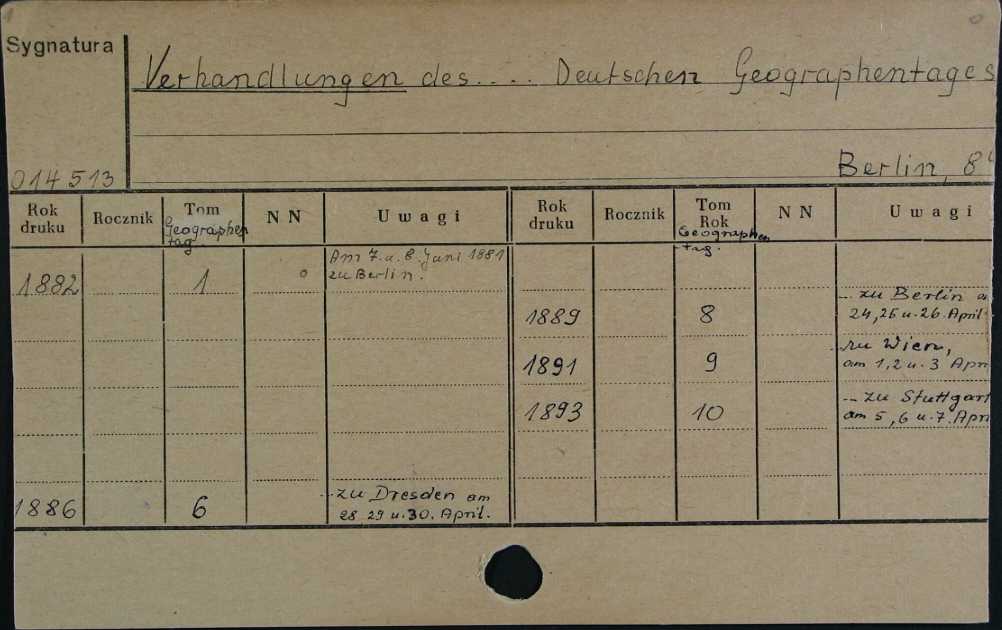 Sygnatura
Verhandlungen des.... Deutschen Geographentages
014513
Berlin, 8°
Rok druku Rocznik Tom Geographen tag NN Uwagi
1882 1 Am 7. u. 8. Juni 1881
zu Berlin.
1886 6 ...zu Dresden am
28 29 u. 30. April.
Rok druku Rocznik Tom Rok Geographen tag. NN Uwagi
1889 8 ... zu Berlin
24, 25 u. 26. April
1891 9 zu Wien,
am 1, 2 u. 3 Apri
1893 10 ... zu Stuttgart
am 5, 6 u. 7. Apri